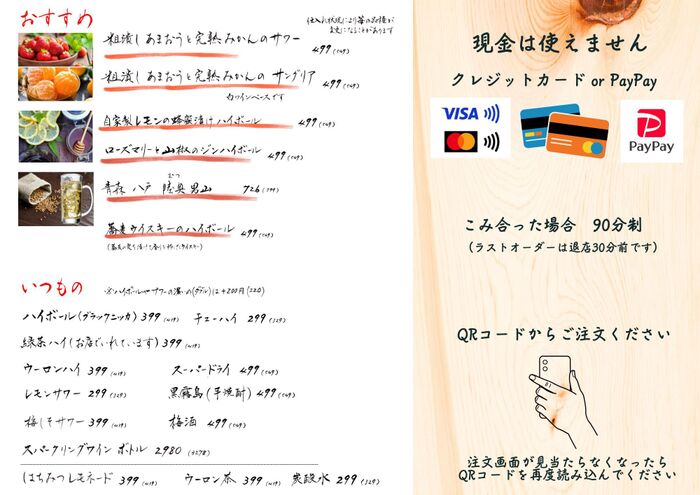 おすすめ
(仕入れ状況により苺の品種が
変更になることがあります
粗潰しあまおうと完熟みかんのサワー 499 (549)
粗潰しあまおうと完熟みかんのサングリア 499 (549)
白ワインベースです
自家製レモンの蜂蜜漬けハイボール 499 (549)
ローズマリーと山椒のジンハイボール 499 (549)
青森 八戸 陸奥男山 726 (799)
むつ
蕎麦ウイスキーのハイボール 499 (549)
いつもの
※ハイボールやサワーの濃いの(ダブル)は+200円(220)
ハイボール(ブラックニッカ) 399 (419) チューハイ 299 (329)
緑茶ハイ(お店でいれています) 399 (419)
ウーロンハイ 399 (419) スーパードライ 499 (549)
レモンサワー 299 (329) 黒霧島(芋焼酎) 499 (549)
梅しそサワー 399 (419) 梅酒 499 (549)
スパークリングワイン ボトル 2980 (3278)
はちみつレモネード 399 (419) ウーロン茶 399 (419) 炭酸水 299 (329)
現金は使えません
クレジットカード or PayPay
VISA
mastercard
PayPay
こみ合った場合 90分制
(ラストオーダーは退店30分前です)
QRコードからご注文ください
注文画面が見当たらなくなったら
QRコードを再度読み込んでください